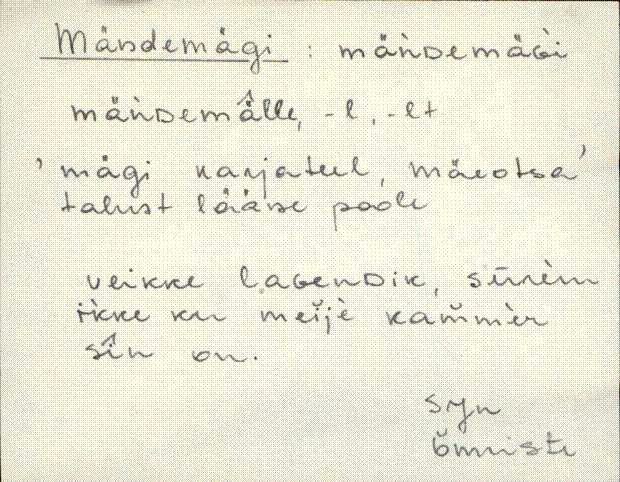 Mändemägi : mäǹᴅemäɢi
mäǹᴅemä̂lle, -l, -lt
'mägi karjateel, mäeotsa'
talust lääne poole
veikke laɢenᴅik, sūrèm
ikke ku meijè kam̆mèr
sîn on.
syn
ŏmuiste